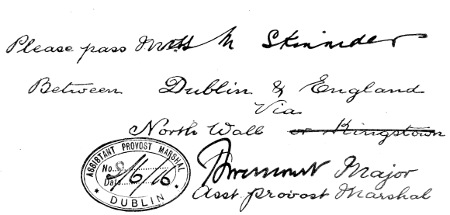 Please pass Miss M Skinnider
Between Dublin & England
Via
North Wall or Kingstown
ASSISTANT PROVOST MARSHAL
No.
Date
DUBLIN
Major
Asst provost Marshal